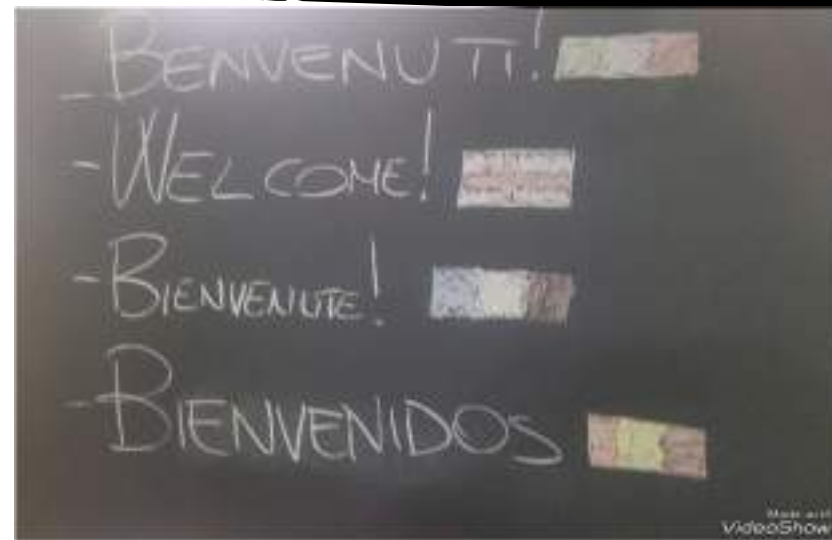 _BENVENUTI!
-WELCOME!
-BIENVENUTE!
-BIENVENIDOS
Made with
VideoShow